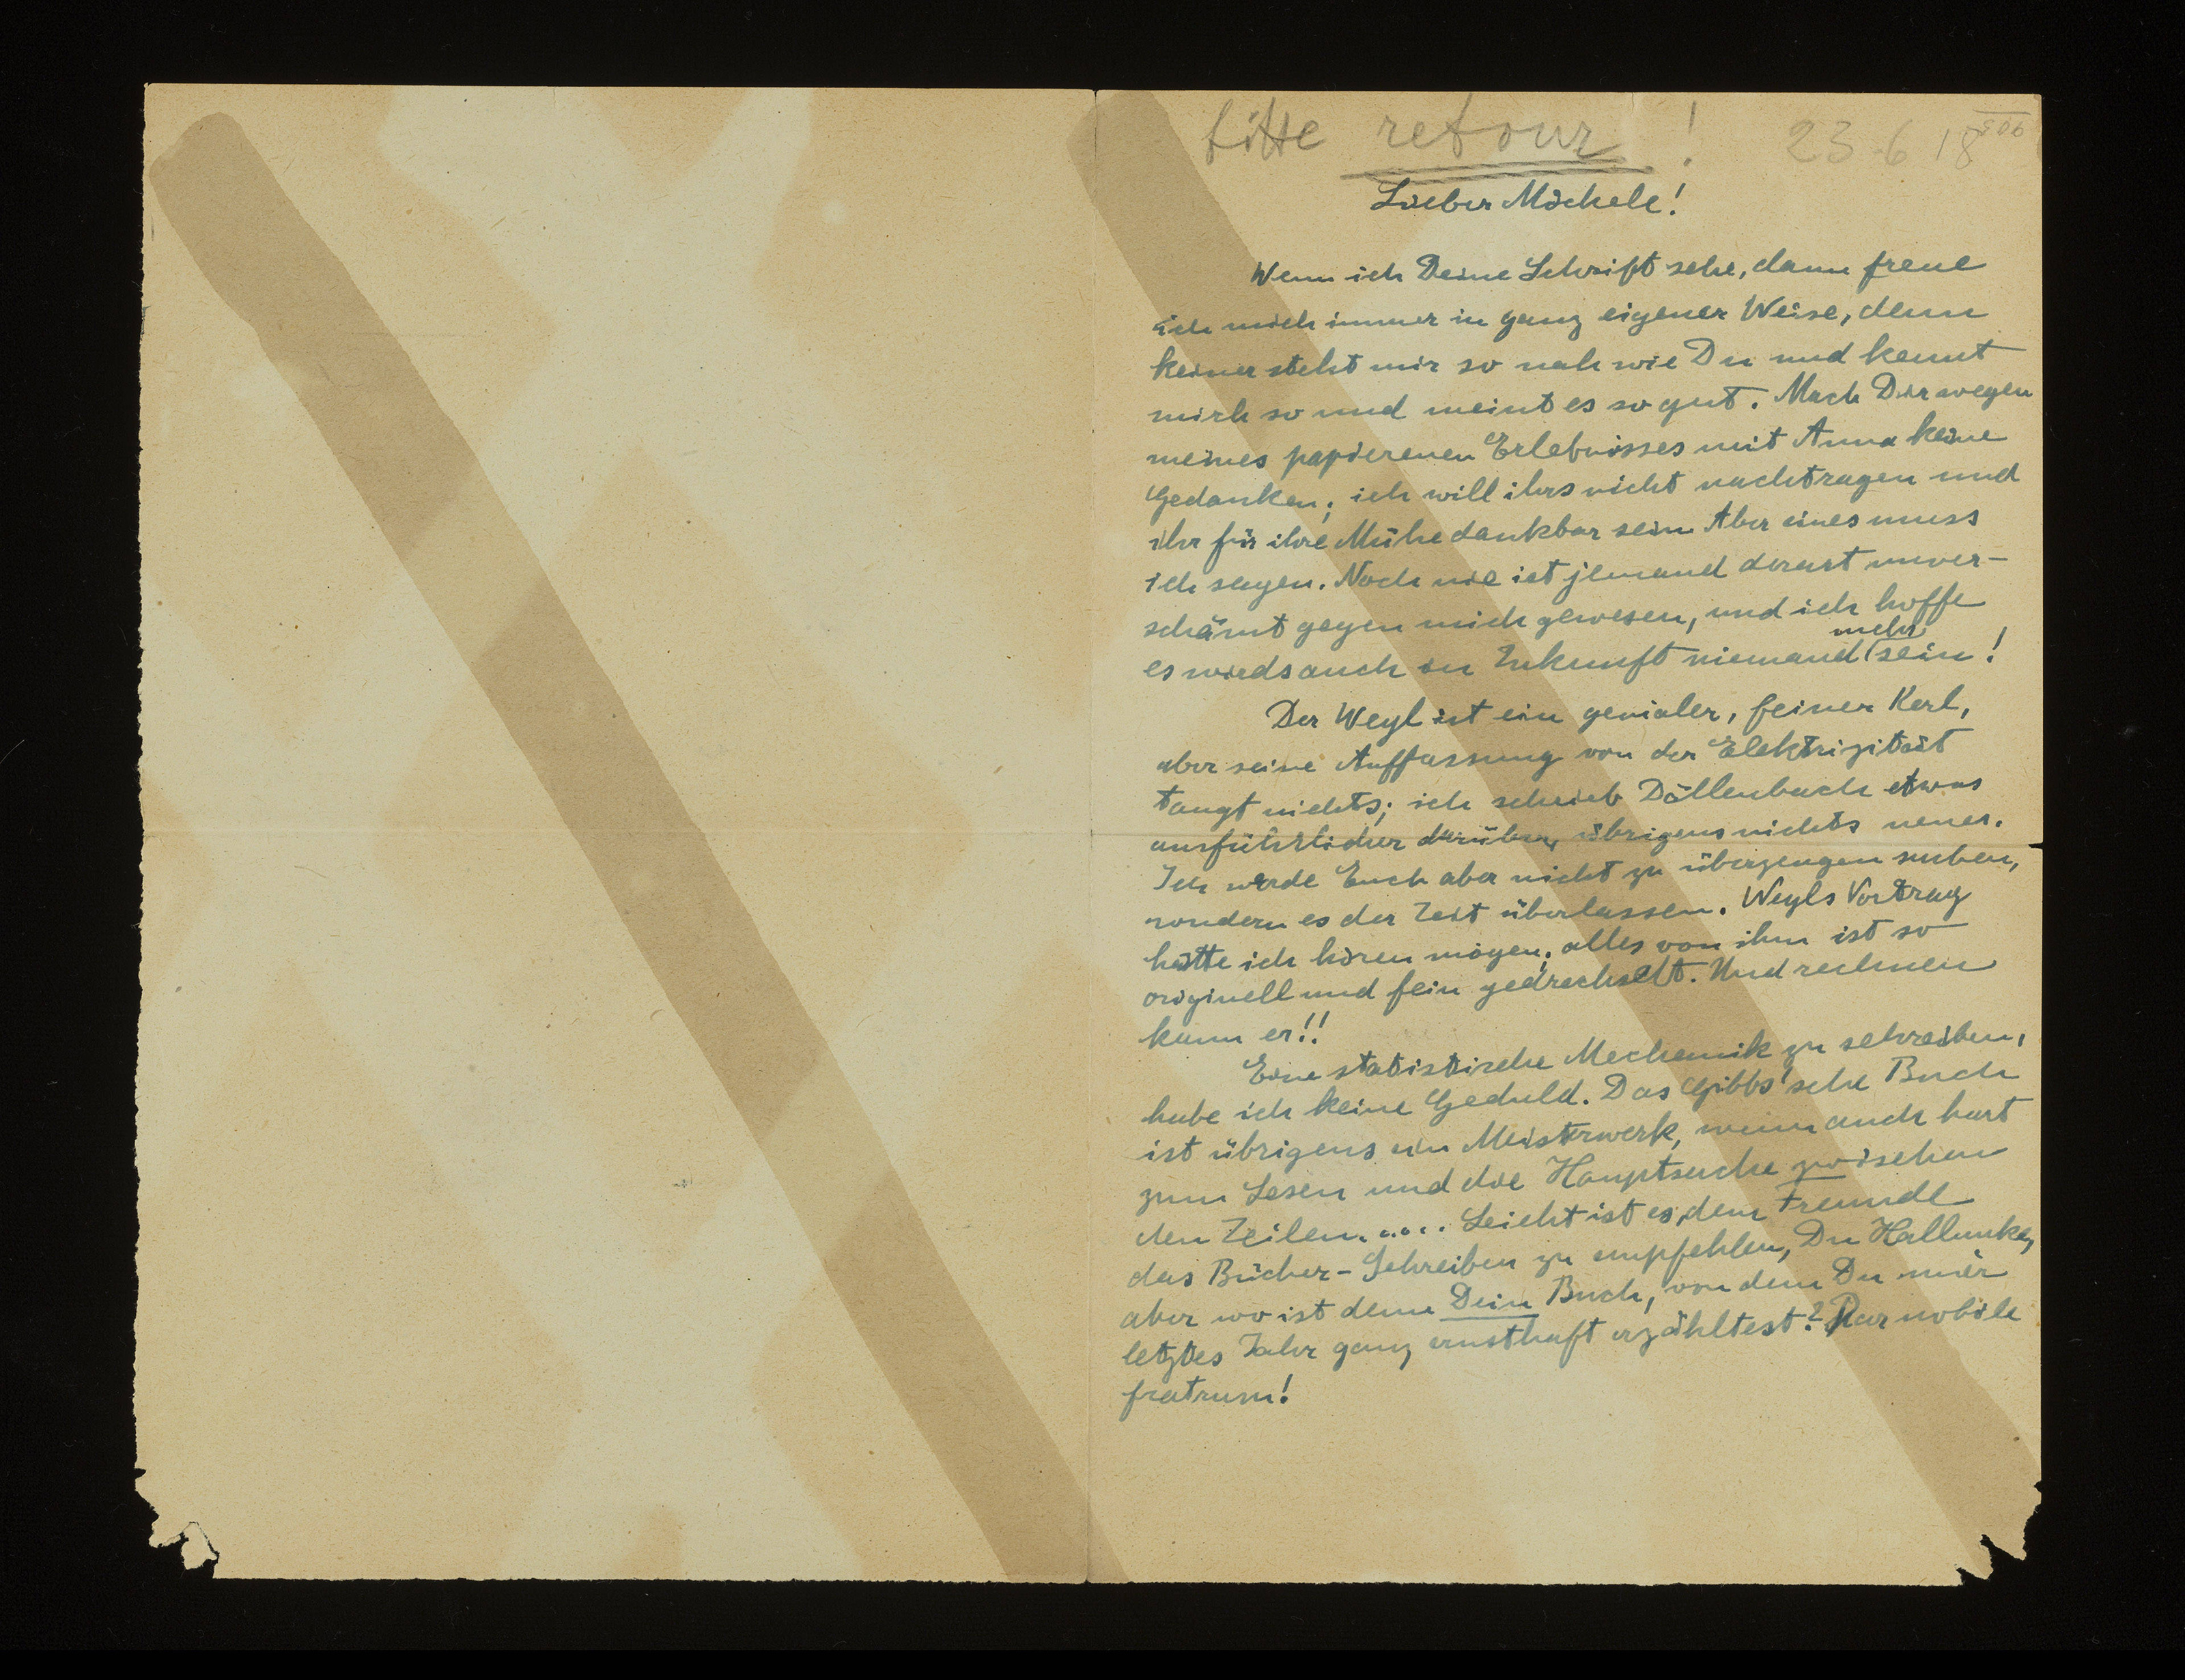 bitte retour !
23.6 18
Lieber Michele!
Wenn ich Deine Schrift sehe, dann freue
ich mich immer in ganz eigener Weise, denn
keiner steht mir so nah wie Du und kennt
mich so und meint es so gut. Mach Dir wegen
meines papierenen Erlebnisses mit Anna keine
Gedanken; ich will ihrs nicht nachtragen und
ihr für ihre Mühe dankbar sein. Aber eines muss
ich sagen. Noch nie ist jemand derart unver-
schämt gegen mich gewesen, und ich hoffe
es wirds auch in Zukunft niemand mehr sein!
Der Weyl ist ein genialer, feiner Kerl,
aber seine Auffassung von der Elektrizität
taugt nichts; ich schrieb Dällenbach etwas
ausführlicher darüber, übrigens nichts neues.
Ich werde Euch aber nicht zu überzeugen suchen,
sondern es der Zeit überlassen. Weyls Vortrag
hätte ich hören mögen; alles von ihm ist so
originell und fein gedrechselt. Und rechnen
kann er!!
Eine statistische Mechanik zu schreiben,
habe ich keine Geduld. Das Gibbs'sche Buch
ist übrigens ein Meisterwerk, wenn auch hart
zum Lesen und die Hauptsache zwischen
den Zeilen..... Leicht ist es, dem Freunde
das Bücher-Schreiben zu empfehlen, Du Hallunke,
aber wo ist denn Dein Buch, von dem Du mir
letztes Jahr ganz ernsthaft erzähltest? Par nobile
fratrum!